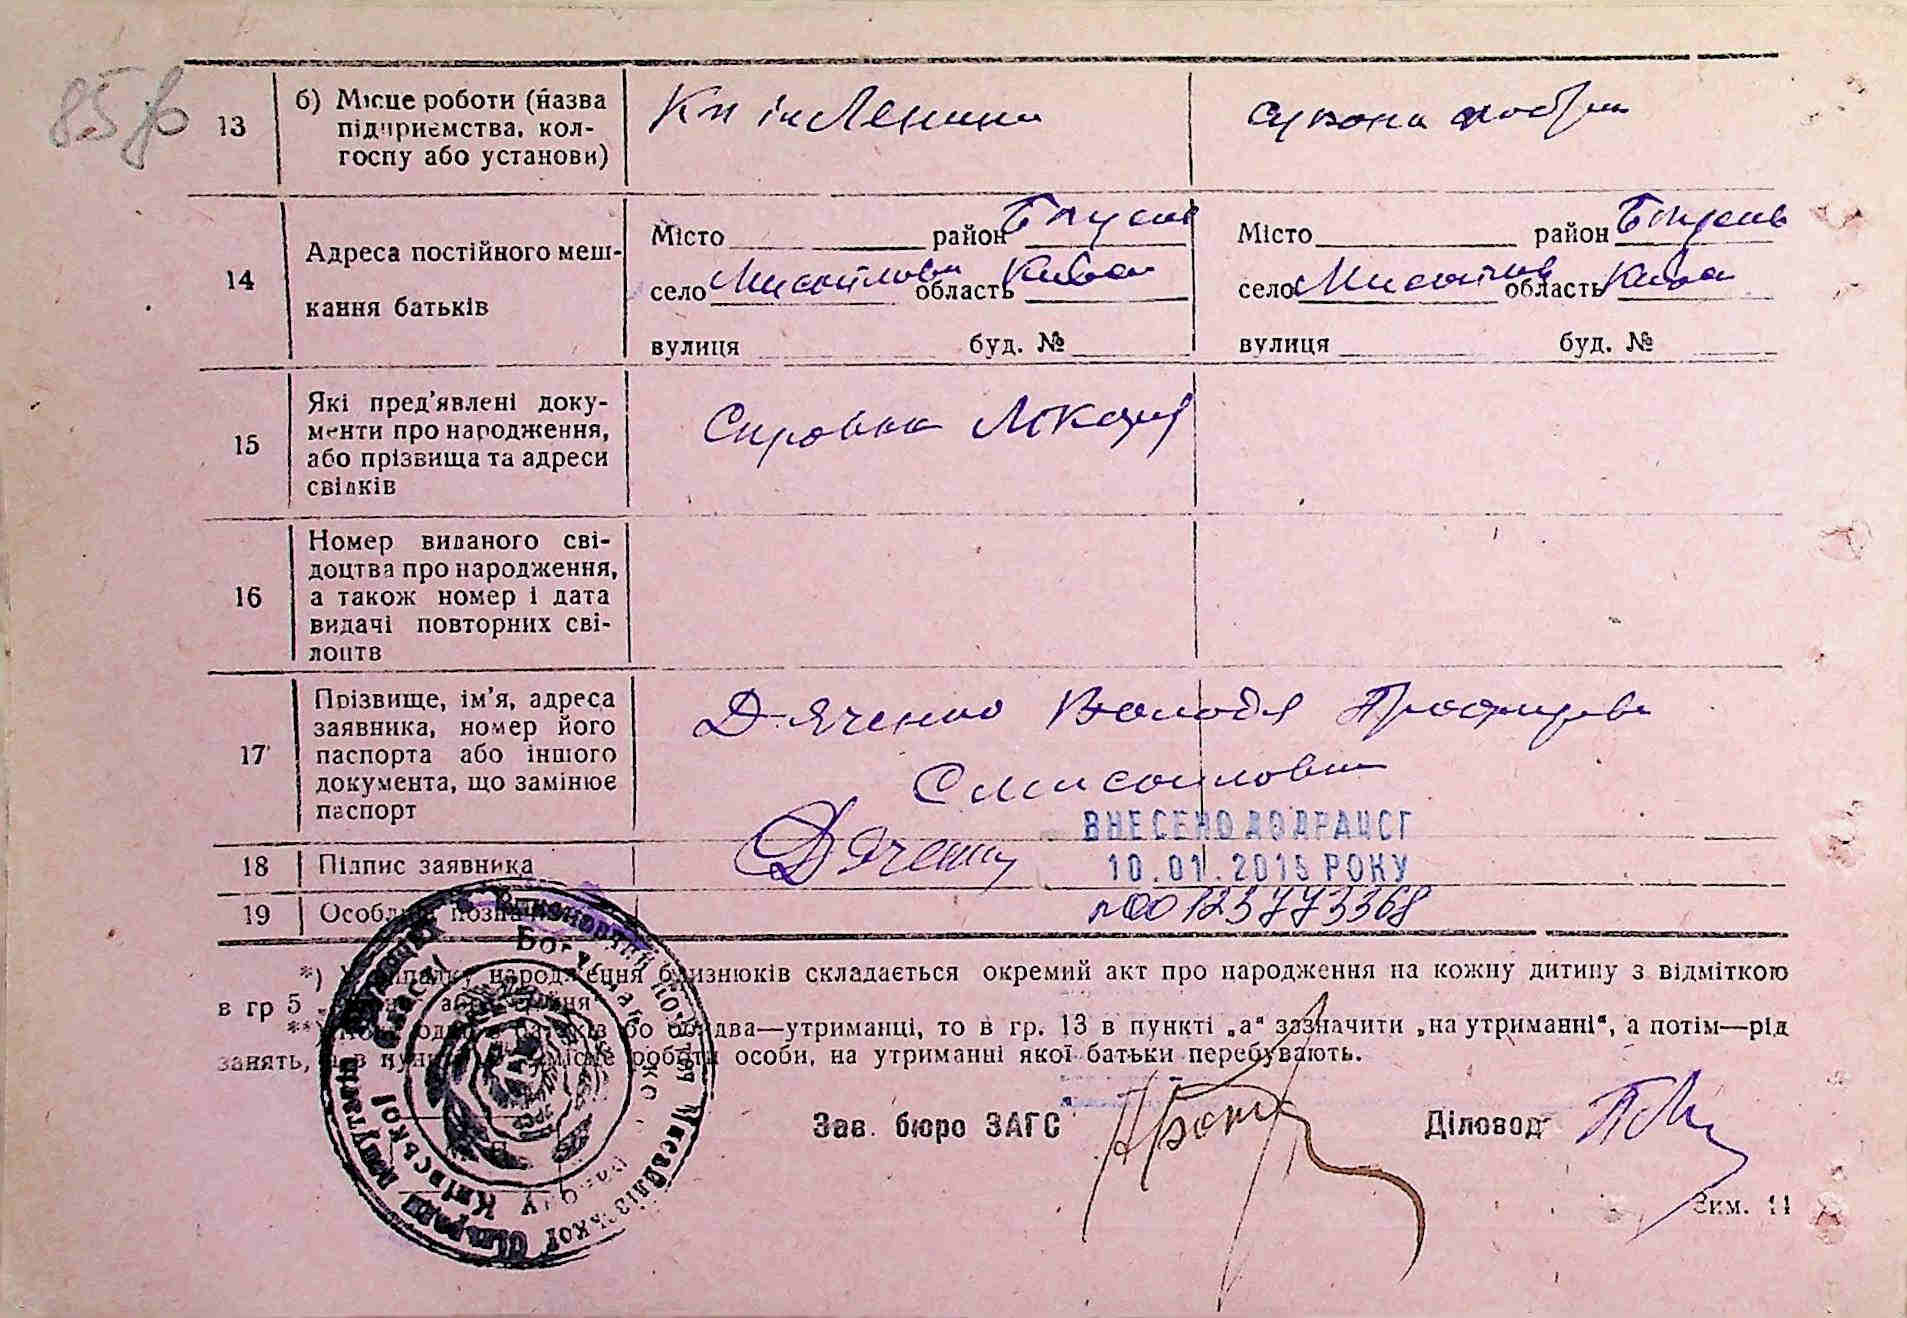 85
13
б) Місце роботи (назва
підприємства, кол-
госпу або установи)
Кп ім Леніна
14
Адреса постійного меш-
кання батьків
Місто район Богуслав
село область Київська
вулиця буд. №
Місто район Богуслав
село область Київська
вулиця буд. №
15
Які пред'явлені доку-
менти про народження,
або прізвища та адреси
свідків
Справка лікаря
16
Номер виданого сві-
доцтва про народження,
а також номер і дата
видачі повторних сві-
доцтв
17
Прізвище, ім'я, адреса
заявника, номер його
паспорта або іншого
документа, що замінює
паспорт
Дяченко Володя
ВНЕСЕНО ДО ДРАЦСГ
18
Підпис заявника
Дяченко
10.01.2015 РОКУ
19
Особливі позначки
№00125773368
*) У випадку народження близнюків складається окремий акт про народження на кожну дитину з відміткою
в гр 5
утриманці, то в гр. 13 в пункті „а“ зазначити „на утриманні“, а потім—рід
занять, а в пункті місце роботи особи, на утриманні якої батьки перебувають.
Зав. бюро ЗАГС
Діловод
Зим. 11